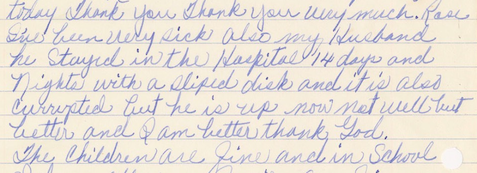 today Thank you Thank you very much. Rose
I've been very sick also my Husband
he Stayed in the Hospital 14 days and
Nights with a sliped disk and it is also
currupted but he is up now not well but
better and I am better thank God.
The Children are fine and in School